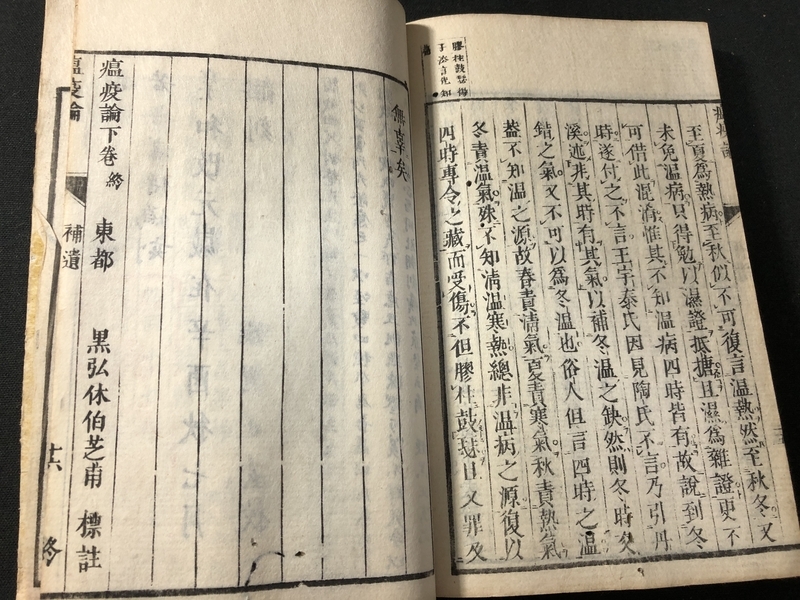 至夏爲熱病至秋似不可復言温熱然至秋冬又
未免温病只得勉以濕證抵搪且濕爲雜證更不
可借此混淆惟其不知温病四時皆有故說到冬
時遂付之不言王宇泰氏因見陶氏不言乃引丹
溪述非其時有其氣以補冬温之缺然則冬時交
錯之氣又不可以爲冬温也俗人但言四時之温
蓋不知温之源故春責清氣夏責寒氣秋責熱氣
冬責温氣殊不知清温寒熱總非温病之源復以
四時專令之藏而受傷不但膠柱鼓瑟且又罪及
膠柱鼓瑟
無辜矣
瘟疫論下卷終 東都 黒弘休伯芝甫 標註
瘟疫論 補遺 終